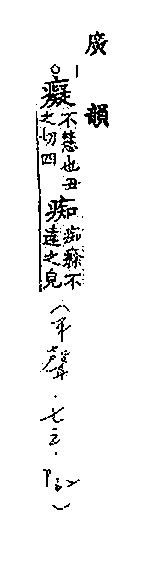 廣韻
癡
不慧也丑
之切四
痴
痴不
達之皃
(平聲・七之・